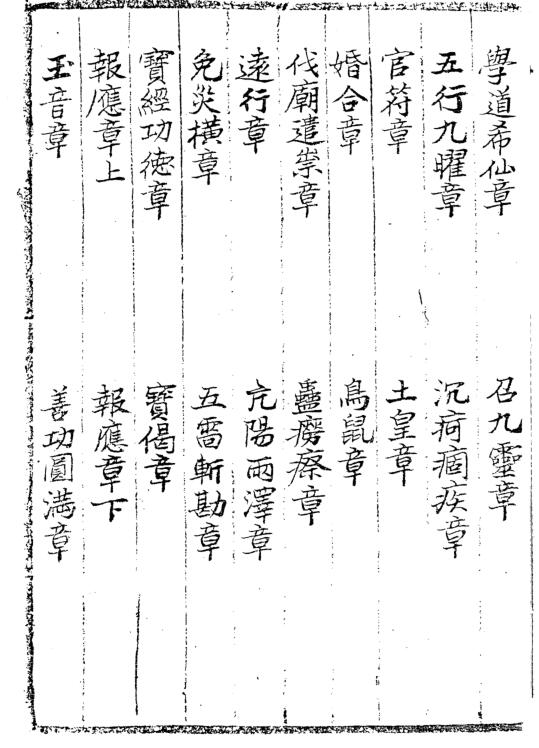 學道希仙章 召九靈章
五行九曜章 沉痾痼疾章
官符章 土皇章
婚合章 鳥鼠章
伐廟遣祟章 蠱癆瘵章
遠行章 亢陽雨澤章
免災橫章 五雷斬勘章
寶經功德章 寶偈章
報應章上 報應章下
玉音章 善功圓滿章